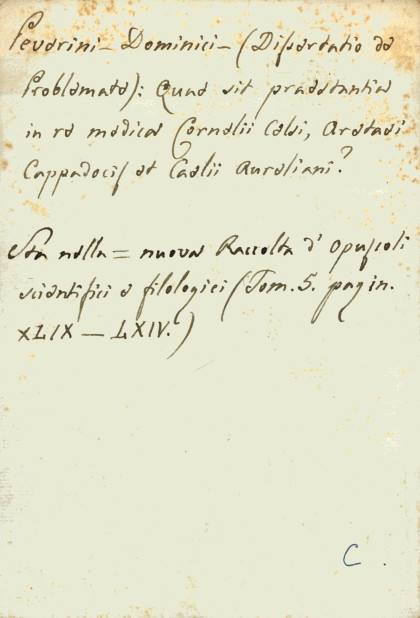 Peverini - Dominici - (Dissertatio de
Problemate): Quae sit praestantia
in re medica Cornelii Celsi, Aretaei
Cappadocis et Caelii Aureliani?
Sta nella = nuova Raccolta d' opuscoli
scientifici e filologici (Tom. 5. pagin.
XLIX — LXIV.)
C.